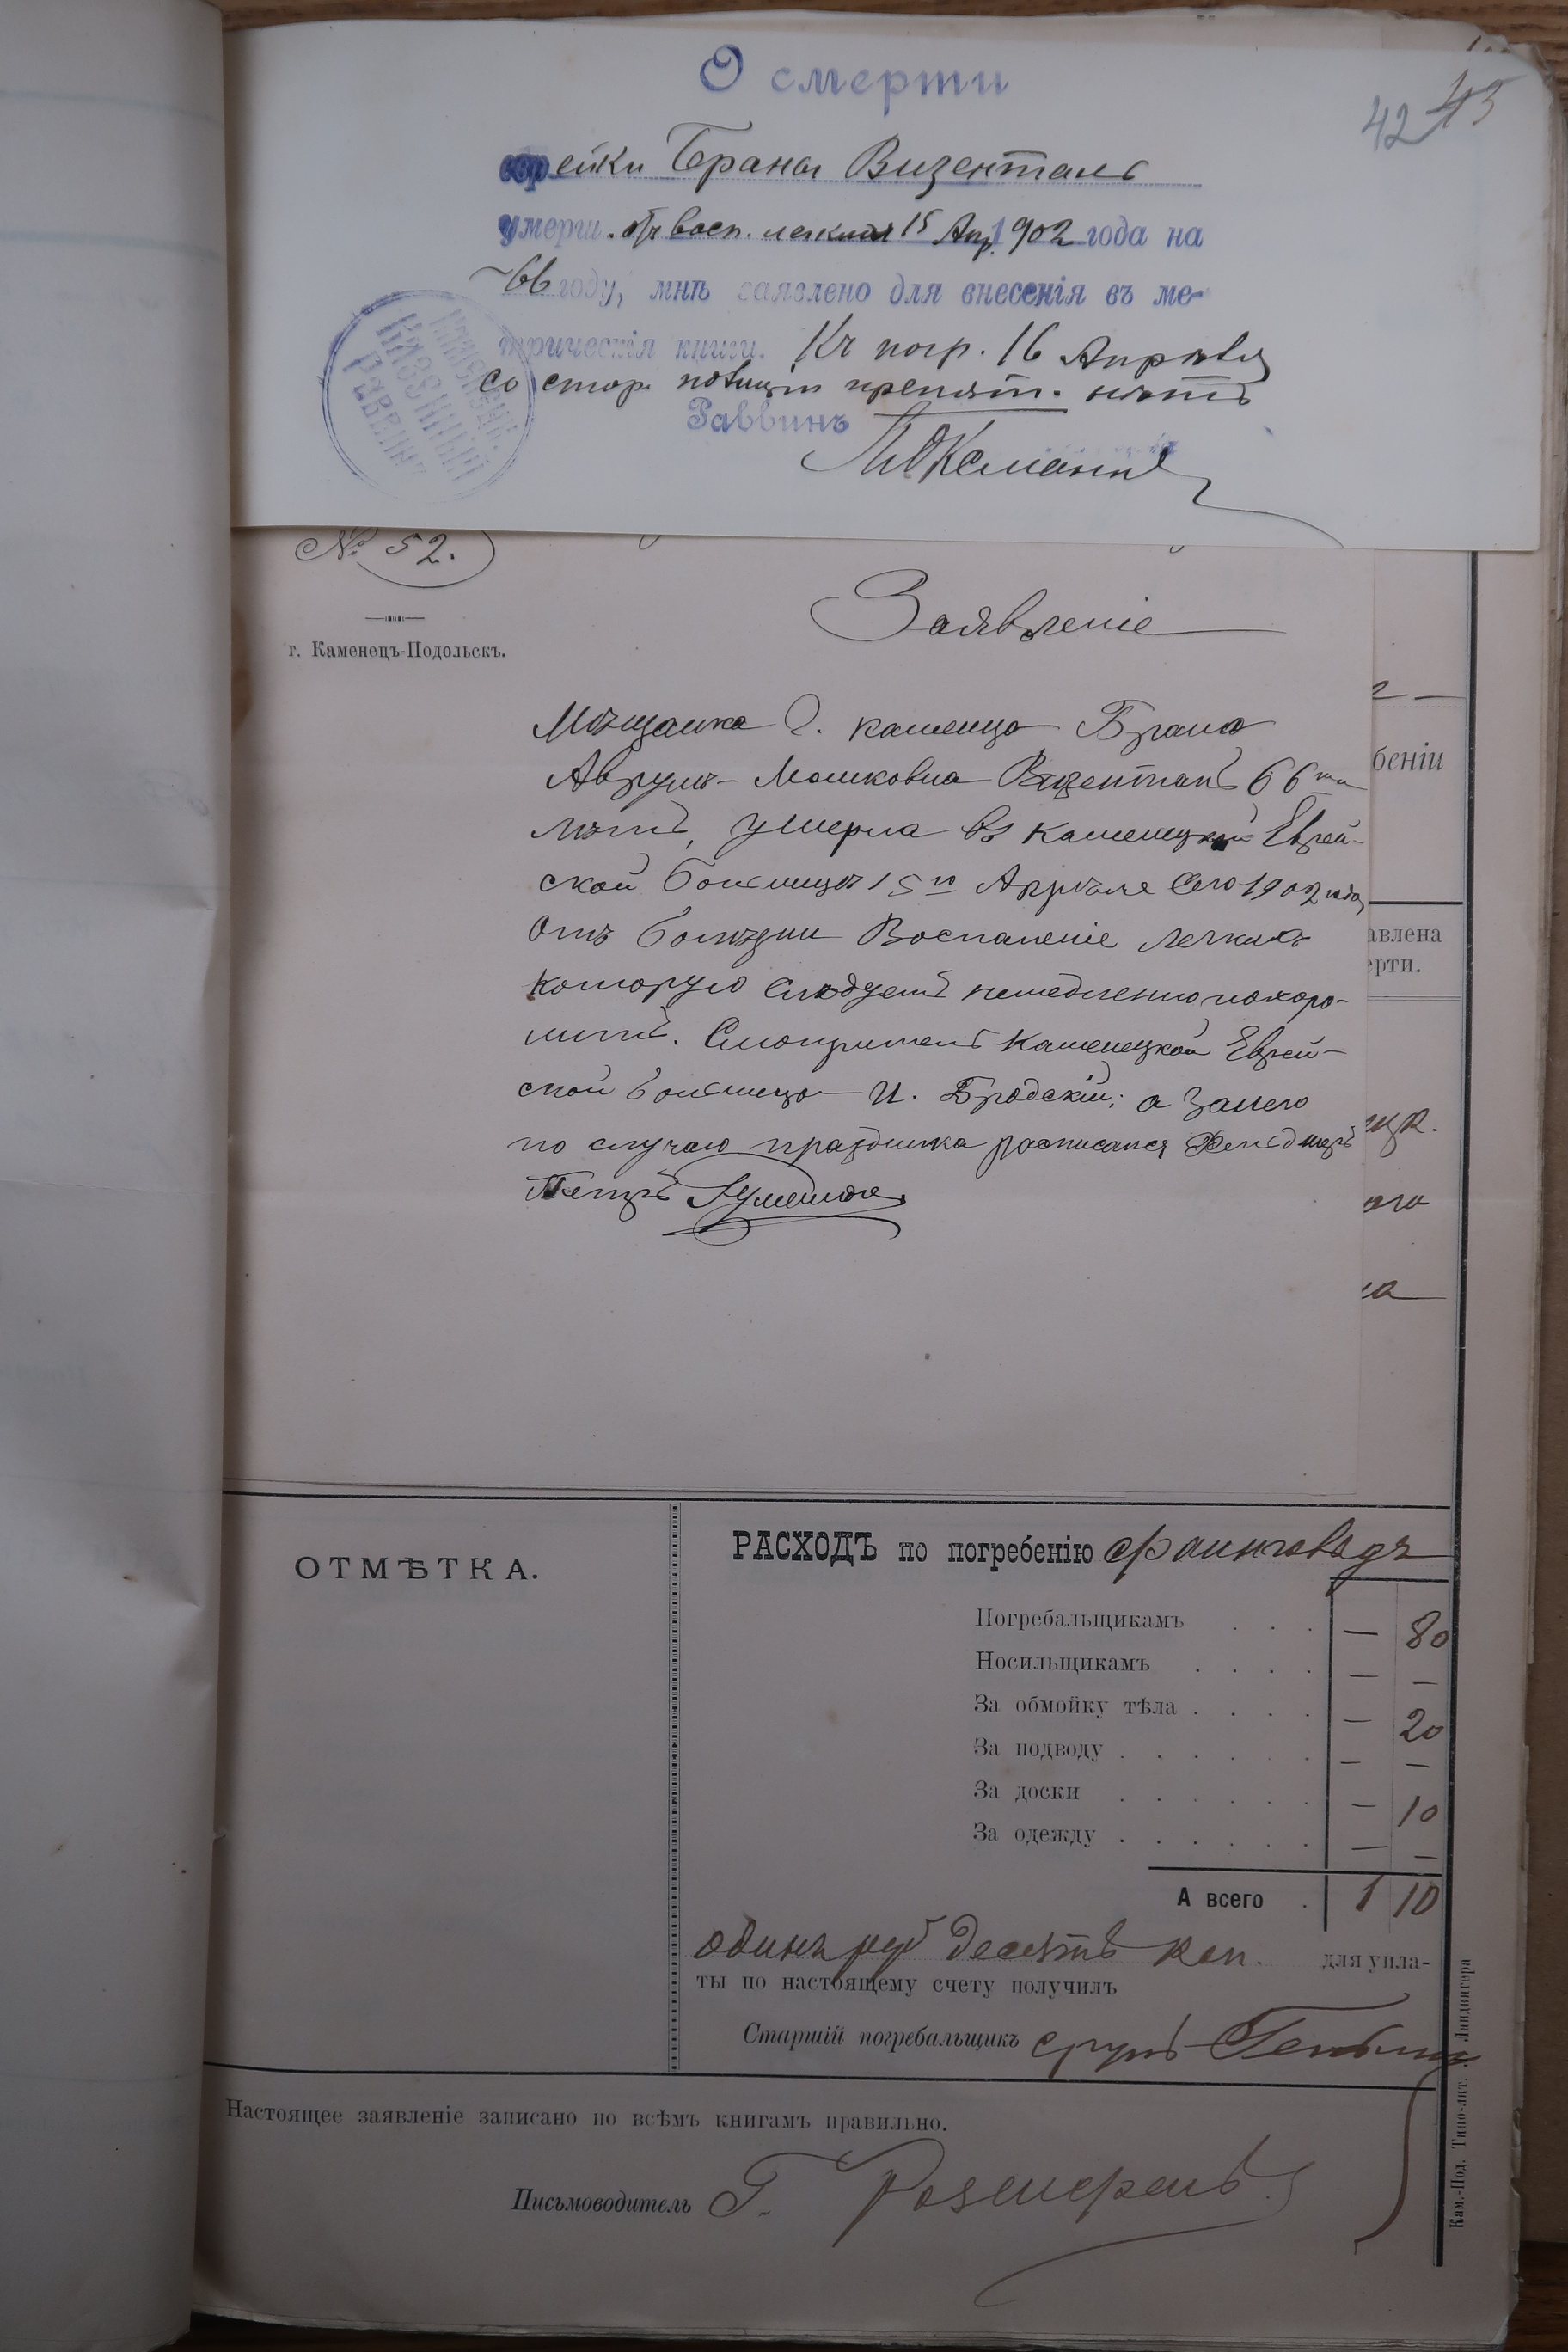 О смерти
42 43
еврейки Браны Визенталь
умерш. отъ восп. легкихъ 15 Апр. 1902 года на
66 году, мнѣ заявлено для внесенія въ ме-
трическія книги. Къ погр. 16 Апрѣля
со стор. полиціи препят. нѣтъ
Раввинъ
КАЗЕННЫЙ
РАВВИНЪ
№ 52.
Заявленіе
г. Каменецъ-Подольскъ.
Мѣщанка г. Каменца Брана
Аврумъ-Мошковна Визенталь 66ти
лѣтъ, умерла въ Каменецкой Еврей-
ской больницѣ 15го Апрѣля сего 1902 года
отъ болѣзни Воспаленіе легкихъ
которую слѣдуетъ немедленно похоро-
нить. Смотритель Каменецкой Еврей-
ской больницы И. Бродскій; а за него
по случаю праздника росписался Фельдшеръ
Петръ
беніи
авлена
ерти.
ОТМѢТКА.
РАСХОДЪ по погребенію
Погребальщикамъ . . . — 80
Носильщикамъ . . . . — —
За обмойку тѣла . . . . — 20
За подводу . . . . . . — —
За доски . . . . . . — 10
За одежду . . . . . . — —
А всего . 1 10
одинъ руб десять коп. для упла-
ты по настоящему счету получилъ
Старшій погребальщикъ Сруль
Настоящее заявленіе записано по всѣмъ книгамъ правильно.
Письмоводитель Г.
Кам.-Под. Типо-лит. Ландвигера